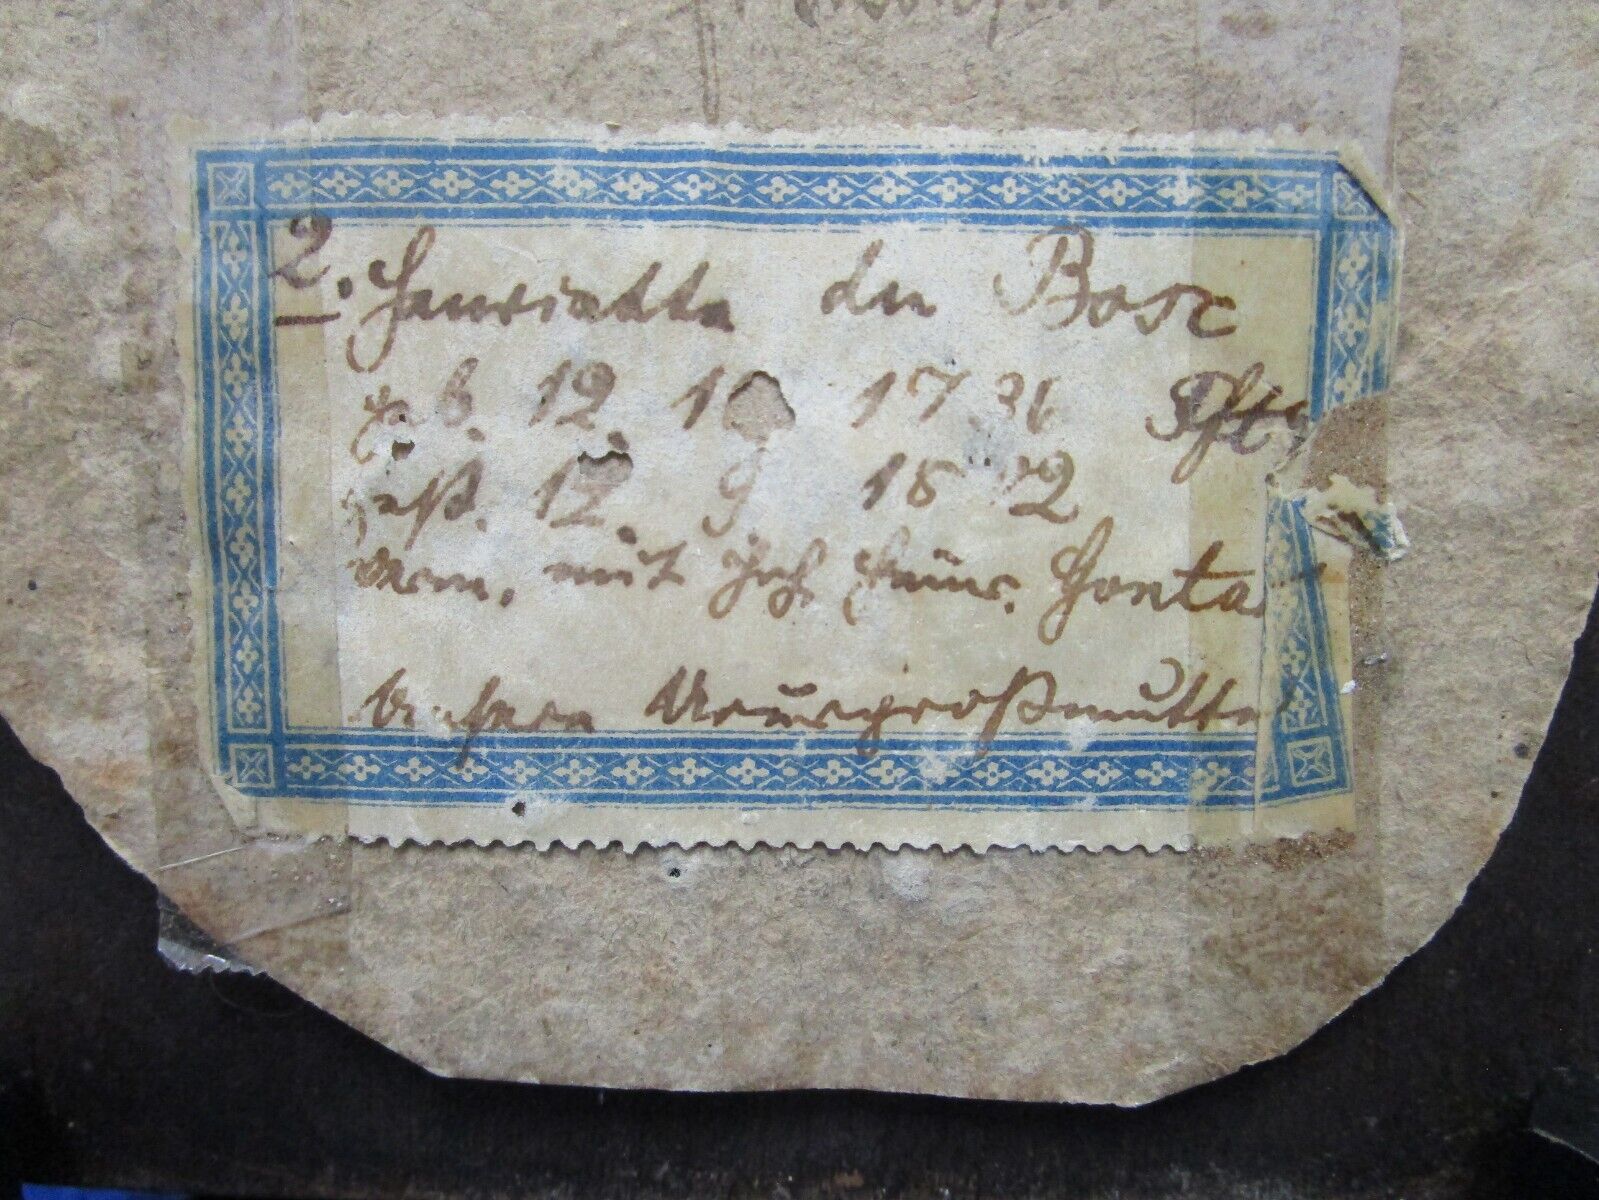 2. Henriette du Bosc
geb. 12. 1 1736
gest. 12. 9 18 2
verm. mit Jch. Heinr. Gonta
Unsere Ururgroßmutte